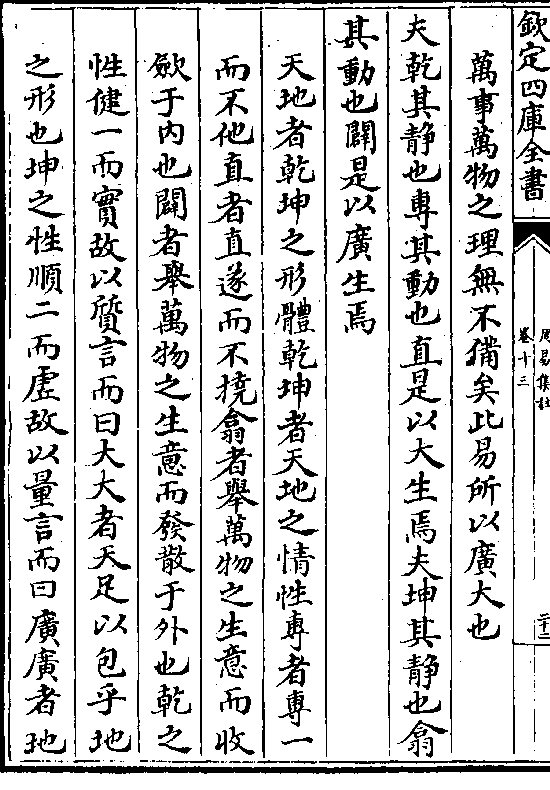 欽定四庫全書
周易集註
卷十三
二十二
萬事萬物之理無不備矣此易所以廣大也
夫乾其静也專其動也直是以大生焉夫坤其静也翕
其動也闢是以廣生焉
天地者乾坤之形體乾坤者天地之情性專者專一
而不他直者直遂而不撓翕者舉萬物之生意而收
斂于内也闢者舉萬物之生意而發散于外也乾之
性健一而實故以質言而曰大大者天足以包乎地
之形也坤之性順二而虚故以量言而曰廣廣者地